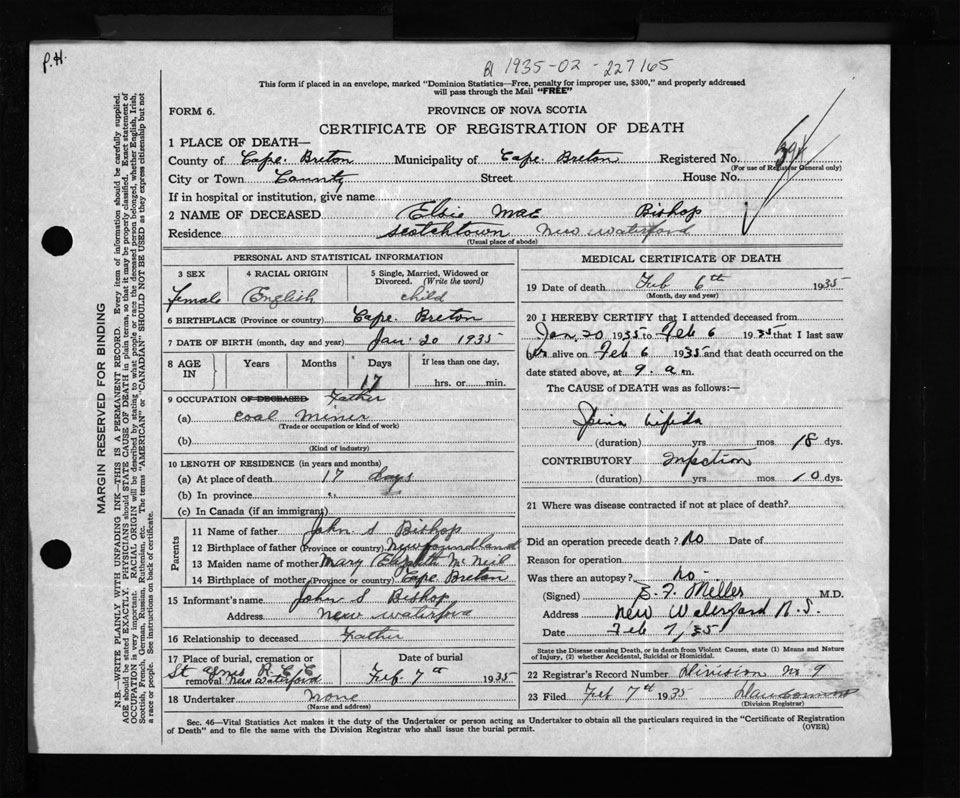 P.H.
1935-02-227165
This form if placed in an envelope, marked "Dominion Statistics—Free, penalty for improper use, $300," and properly addressed
will pass through the Mail "FREE"
FORM 6.
PROVINCE OF NOVA SCOTIA
CERTIFICATE OF REGISTRATION OF DEATH
1 PLACE OF DEATH—
County of Cape Breton Municipality of Cape Breton Registered No.
(For use of Registrar General only)
City or Town County Street House No.
If in hospital or institution, give name
2 NAME OF DECEASED Elsie Mae Bishop
Residence Scotchtown New Waterford
(Usual place of abode)
PERSONAL AND STATISTICAL INFORMATION
3 SEX 4 RACIAL ORIGIN 5 Single, Married, Widowed or
Divorced. (Write the word)
female English child
6 BIRTHPLACE (Province or country) Cape Breton
7 DATE OF BIRTH (month, day and year) Jan 20 1935
8 AGE IN Years Months Days If less than one day,
17 hrs. or min.
9 OCCUPATION OF DECEASED Father
(a) Coal Miner
(Trade or occupation or kind of work)
(b)
(Kind of industry)
10 LENGTH OF RESIDENCE (in years and months)
(a) At place of death 17 days
(b) In province "
(c) In Canada (if an immigrant)
Parents
11 Name of father John S Bishop
12 Birthplace of father (Province or country) Newfoundland
13 Maiden name of mother Mary Elizabeth McNeil
14 Birthplace of mother (Province or country) Cape Breton
15 Informant's name John S Bishop
Address New Waterford
16 Relationship to deceased Father
17 Place of burial, cremation or
removal St Agnes New Waterford
Date of burial
Feb 7th 1935
18 Undertaker None
(Name and address)
MEDICAL CERTIFICATE OF DEATH
19 Date of death Feb 6th 1935
(Month, day and year)
20 I HEREBY CERTIFY that I attended deceased from
Jan 20 1935 to Feb 6 1935 that I last saw
her alive on Feb 6 1935 and that death occurred on the
date stated above, at 9. a.m.
The CAUSE OF DEATH was as follows:—
Spina bifida
(duration) yrs mos 18 dys.
CONTRIBUTORY Infection
(duration) yrs mos 10 dys.
21 Where was disease contracted if not at place of death?
Did an operation precede death? no Date of
Reason for operation
Was there an autopsy? no
(Signed) Miller M.D.
Address New Waterford N.S.
Date Feb 7, 35
State the Disease causing Death, or in death from Violent Causes, state (1) Means and Nature
of Injury, (2) whether Accidental, Suicidal or Homicidal.
22 Registrar's Record Number Division No 9
23 Filed Feb 7th 1935
(Division Registrar)
Sec. 46—Vital Statistics Act makes it the duty of the Undertaker or person acting as Undertaker to obtain all the particulars required in the "Certificate of Registration
of Death" and to file the same with the Division Registrar who shall issue the burial permit.
(OVER)
MARGIN RESERVED FOR BINDING
N.B.—WRITE PLAINLY WITH UNFADING INK—THIS IS A PERMANENT RECORD. Every item of information should be carefully supplied.
AGE should be stated EXACTLY. PHYSICIANS should STATE CAUSE OF DEATH in plain terms, so that it may be properly classified. Exact statement of
OCCUPATION is very important. RACIAL ORIGIN will be described by stating to what people or race the deceased person belonged, whether English, Irish,
Scottish, French, German, Russian, Ruthenian, etc. The terms "AMERICAN" or "CANADIAN" SHOULD NOT BE USED as they express citizenship but not
a race or people. See instructions on back of certificate.